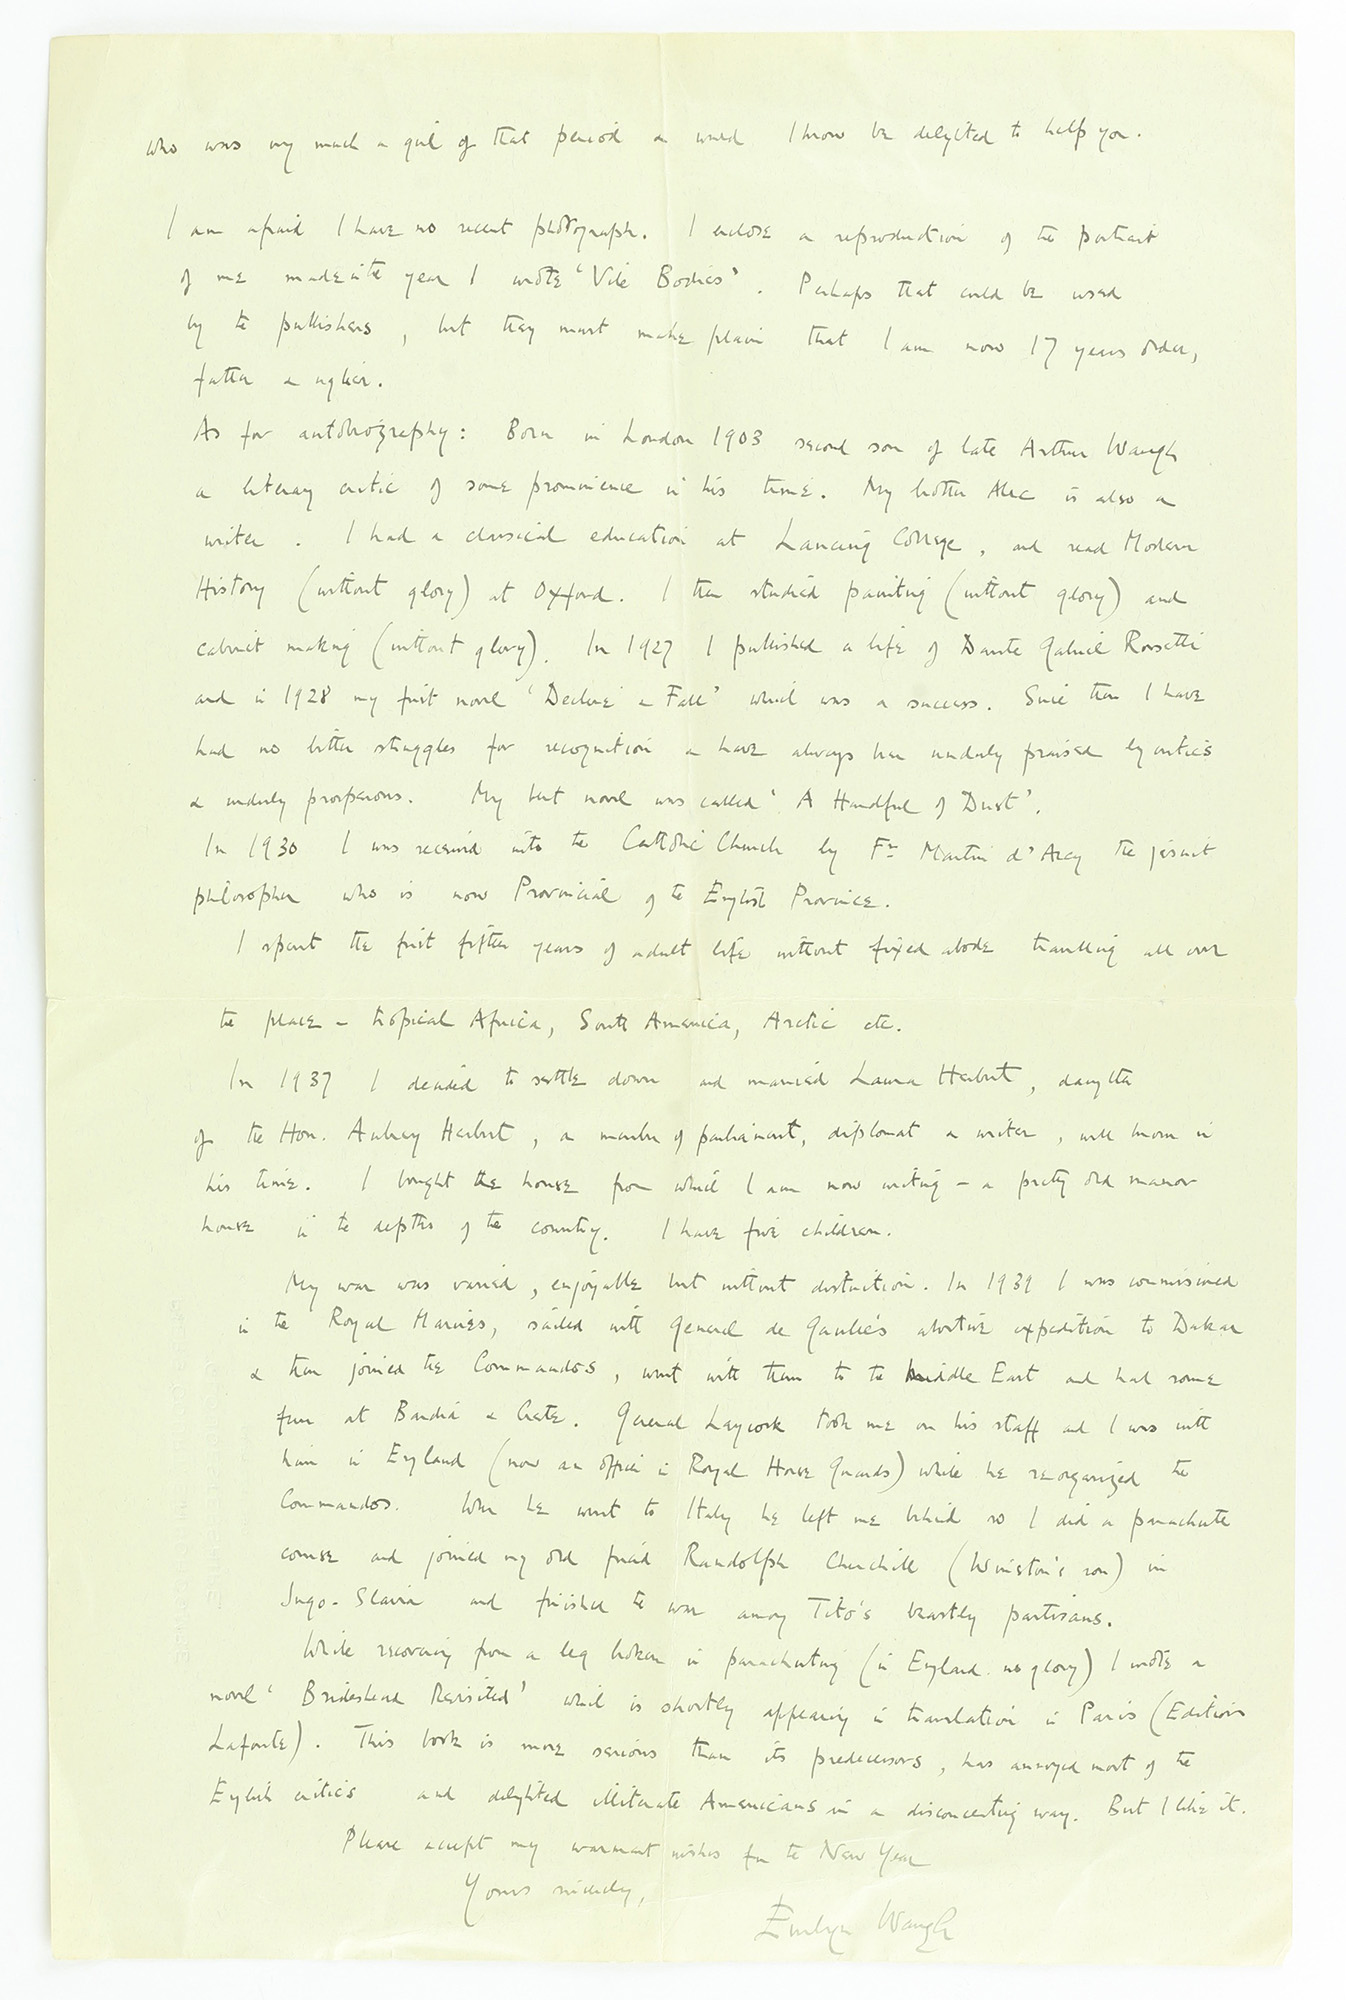 who was very much a girl of that period & would I know be delighted to help you.
I am afraid I have no recent photograph. I enclose a reproduction of the portrait
of me made in the year I wrote 'Vile Bodies'. Perhaps that could be used
by the publishers, but they must make plain that I am now 17 years older,
fatter & uglier.
As for autobiography: Born in London 1903 second son of late Arthur Waugh
a literary critic of some prominence in his time. My brother Alec is also a
writer. I had a classical education at Lancing College, and read Modern
History (without glory) at Oxford. I then studied painting (without glory) and
cabinet making (without glory). In 1927 I published a life of Dante Gabriel Rossetti
and in 1928 my first novel 'Decline & Fall' which was a success. Since then I have
had no bitter struggles for recognition & have always been unduly praised by critics
& unduly prosperous. My best novel was called 'A Handful of Dust'.
In 1930 I was received into the Catholic Church by Fr Martin d'Arcy the jesuit
philosopher who is now Provincial of the English Province.
I spent the first fifteen years of adult life without fixed abode travelling all over
the place – tropical Africa, South America, Arctic etc.
In 1937 I decided to settle down and married Laura Herbert, daughter
of the Hon. Aubrey Herbert, a member of parliament, diplomat & writer, well known in
his time. I bought the house from which I am now writing – a pretty old manor
house in the depths of the country. I have five children.
My war was varied, enjoyable but without distinction. In 1939 I was commissioned
in the Royal Marines, sailed with General de Gaulle's abortive expedition to Dakar
& then joined the Commandos, went with them to the Middle East and had some
fun at Bardia & Crete. General Laycock took me on his staff and I was with
him in England (now an officer in Royal Horse Guards) while he reorganized the
Commandos. When he went to Italy he left me behind so I did a parachute
course and joined my old friend Randolph Churchill (Winston's son) in
Jugo-Slavia and finished the war among Tito's beastly partisans.
While recovering from a leg broken in parachuting (in England. no glory) I wrote a
novel 'Brideshead Revisited' which is shortly appearing in translation in Paris (Edition
Lafonte). This book is more serious than its predecessors, has annoyed most of the
English critics and delighted illiterate Americans in a disconcerting way. But I like it.
Please accept my warmest wishes for the New Year
Yours sincerely,
Evelyn Waugh